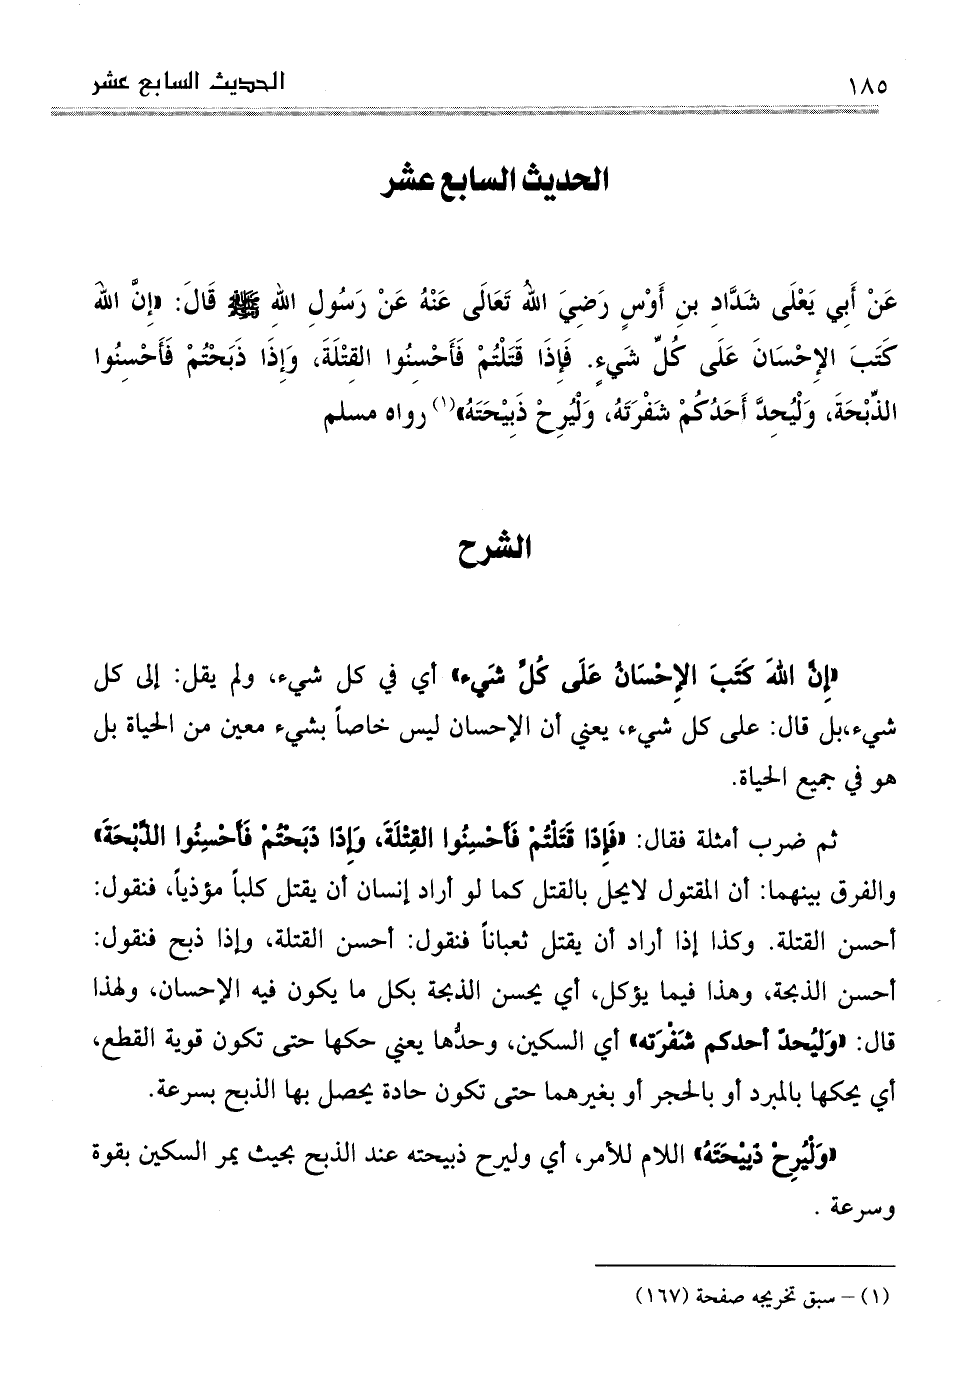 ١٨٥ الحديث السابع عشر
الحديث السابع عشر
عَنْ أَبي يَعْلَى شَدَّادِ بنِ أَوْسٍ رَضِيَ اللهُ تَعَالَى عَنْهُ عَنْ رَسُولِ اللهِ ﷺ قَالَ: «إِنَّ اللهَ
كَتَبَ الإِحْسَانَ عَلَى كُلِّ شَيءٍ. فَإِذَا قَتَلْتُمْ فَأَحْسِنُوا القِتْلَةَ، وَإِذَا ذَبَحْتُمْ فَأَحْسِنُوا
الذِّبْحَةَ، وَلْيُحِدَّ أَحَدُكُمْ شَفْرَتَهُ، وَلْيُرِحْ ذَبِيْحَتَهُ»(١) رواه مسلم
الشرح
«إِنَّ اللهَ كَتَبَ الإِحْسَانُ عَلَى كُلِّ شَيء» أي في كل شيء، ولم يقل: إلى كل
شيء،بل قال: على كل شيء، يعني أن الإحسان ليس خاصاً بشيء معين من الحياة بل
هو في جميع الحياة.
ثم ضرب أمثلة فقال: «فَإِذَا قَتَلْتُمْ فَأَحْسِنُوا القِتْلَةَ، وَإِذَا ذَبَحْتُمْ فَأَحْسِنُوا الذِّبْحَةَ»
والفرق بينهما: أن المقتول لايحل بالقتل كما لو أراد إنسان أن يقتل كلباً مؤذياً، فنقول:
أحسن القتلة. وكذا إذا أراد أن يقتل ثعباناً فنقول: أحسن القتلة، وإذا ذبح فنقول:
أحسن الذبحة، وهذا فيما يؤكل، أي يحسن الذبحة بكل ما يكون فيه الإحسان، ولهذا
قال: «وَليُحدّ أحدكم شَفْرَته» أي السكين، وحدُّها يعني حكها حتى تكون قوية القطع،
أي يحكها بالمبرد أو بالحجر أو بغيرهما حتى تكون حادة يحصل بها الذبح بسرعة.
«وَلْيُرِحْ ذَبِيْحَتَهُ» اللام للأمر، أي وليرح ذبيحته عند الذبح بحيث يمر السكين بقوة
وسرعة .
(١) – سبق تخريجه صفحة (١٦٧)